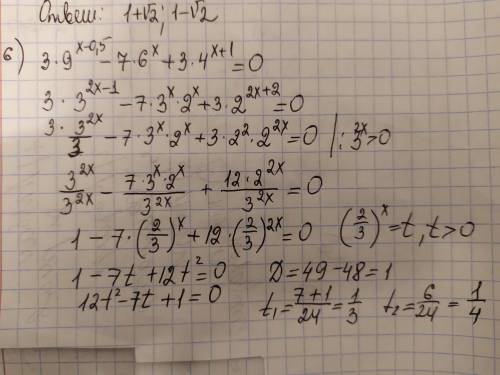 Ответ: 1+√2; 1-√2
б) 3·9^(x-0,5) - 7·6^x + 3·4^(x+1) = 0
3·3^(2x-1) - 7·3^x·2^x + 3·2^(2x+2) = 0
3·3^(2x)/3 - 7·3^x·2^x + 3·2^2·2^(2x) = 0 |: 3^(2x)>0
3^(2x)/3^(2x) - 7·3^x·2^x/3^(2x) + 12·2^(2x)/3^(2x) = 0
1 - 7·(2/3)^x + 12·(2/3)^(2x) = 0 (2/3)^x = t, t>0
1 - 7t + 12t^2 = 0 D = 49 - 48 = 1
12t^2 - 7t + 1 = 0 t₁ = (7+1)/24 = 1/3 t₂ = 6/24 = 1/4